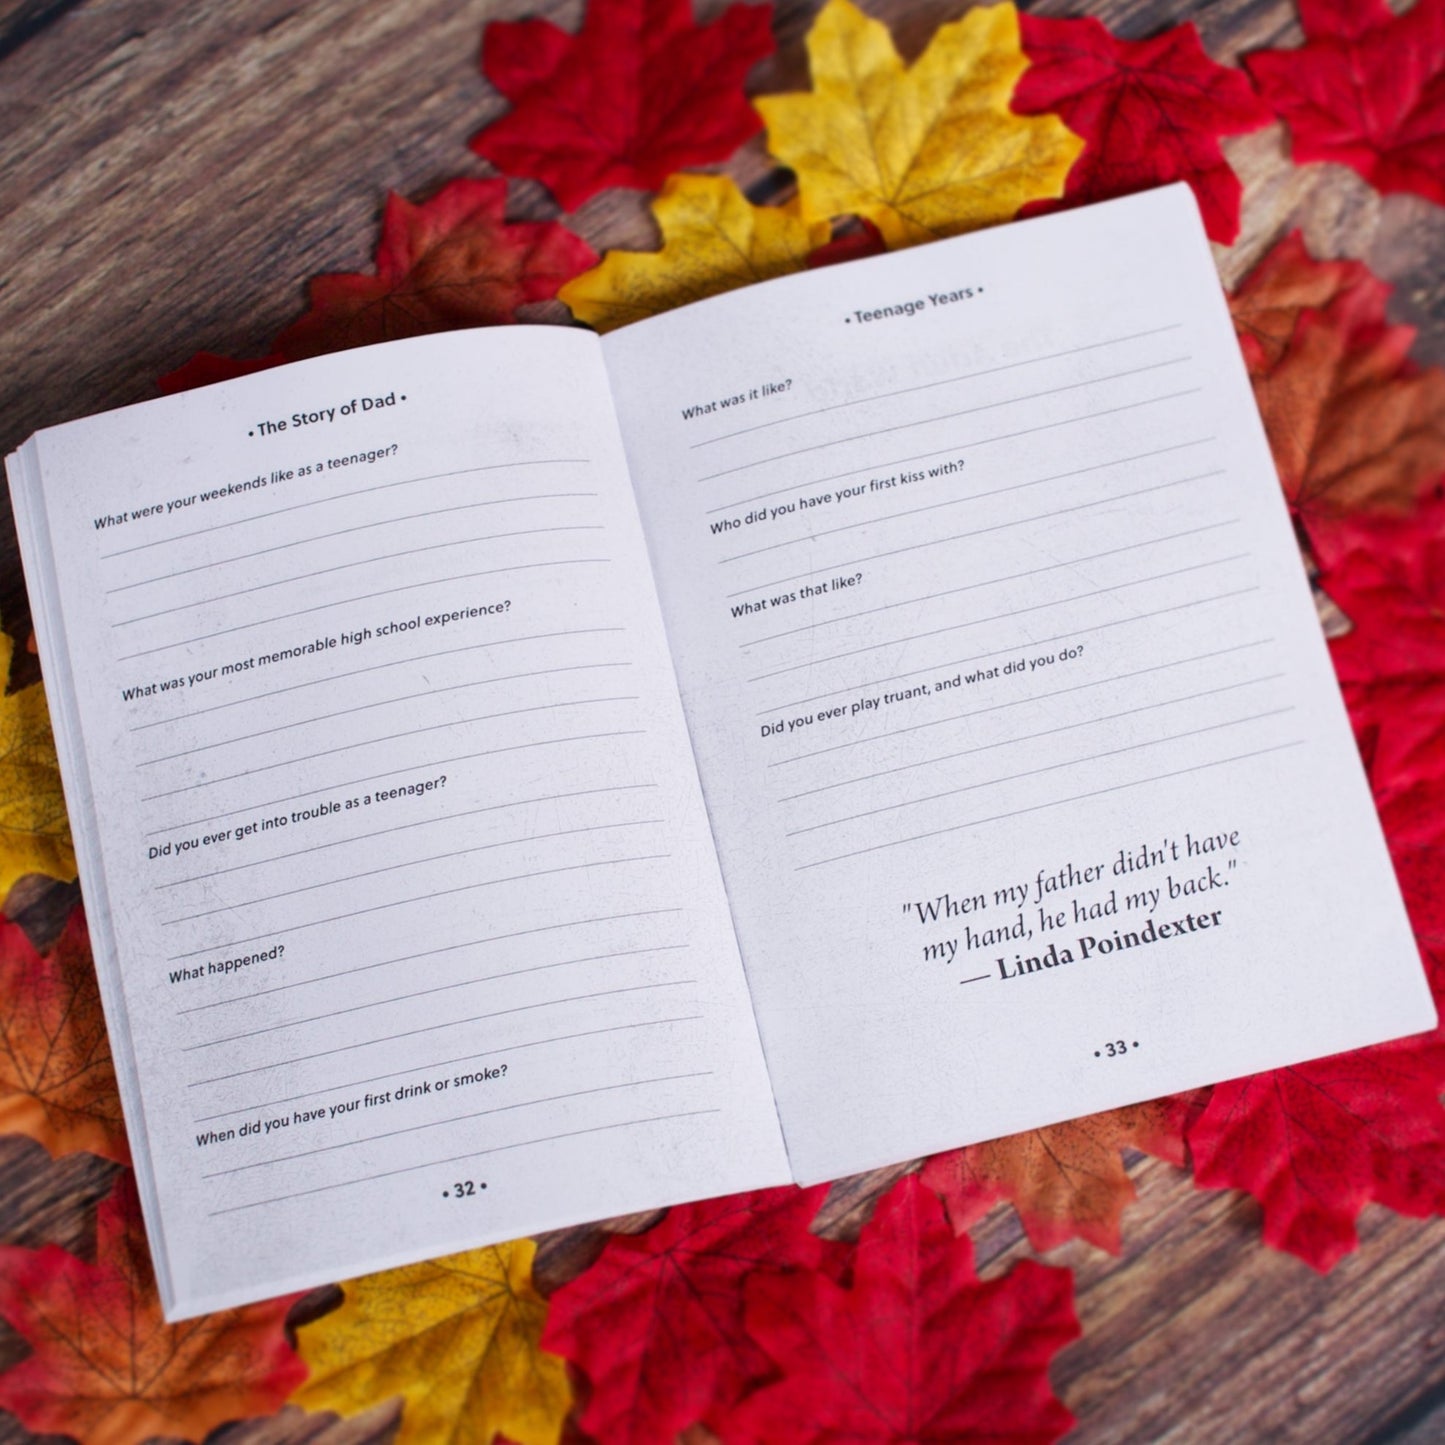 • The Story of Dad •
What were your weekends like as a teenager?
What was your most memorable high school experience?
Did you ever get into trouble as a teenager?
What happened?
When did you have your first drink or smoke?
• 32 •
• Teenage Years •
What was it like?
Who did you have your first kiss with?
What was that like?
Did you ever play truant, and what did you do?
"When my father didn't have
my hand, he had my back."
— Linda Poindexter
• 33 •